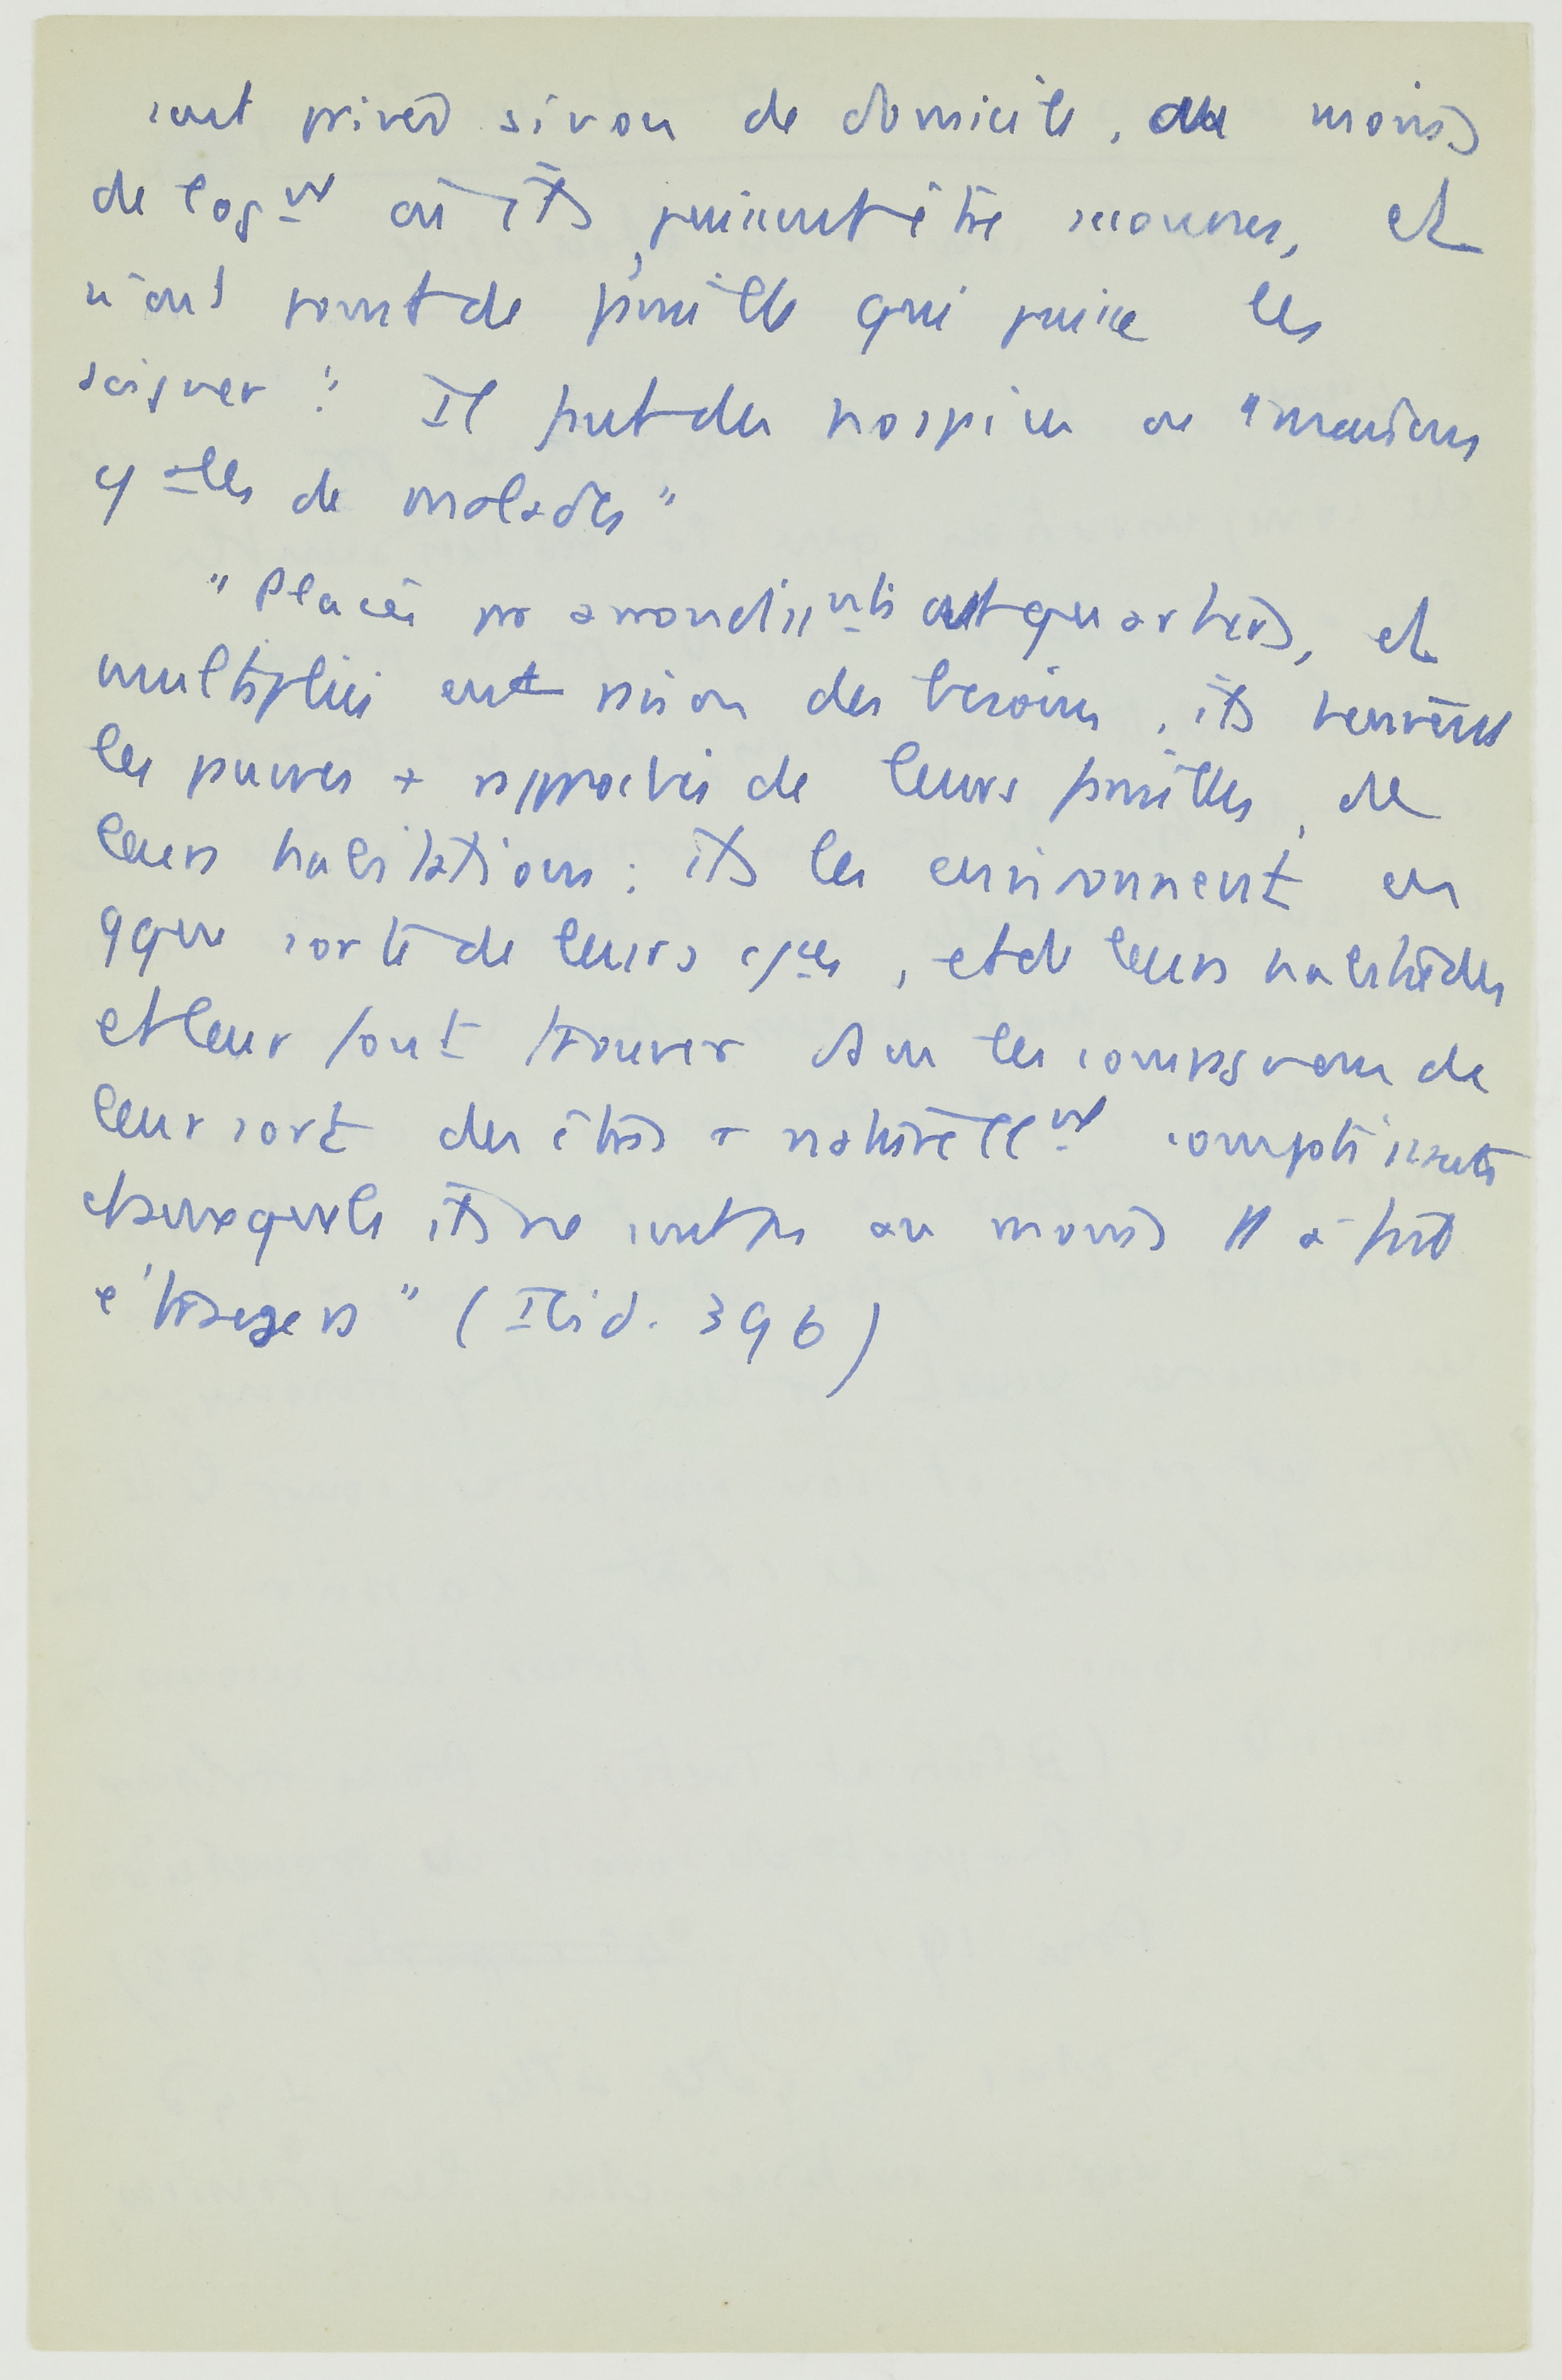 sont privés sinon de domicile, du moins
de logmt où ils puissent être secourus, et
n'ont point de famille qui puisse les
soigner : Il faut des hospices ou "maisons
cylles de malades"
"Placés par arrondissmts et quartiers, et
multipliés en raison des besoins, ils tenvent
les pauvres + rapprochés de leurs familles, de
leurs habitations ; ils les environnent en
qque sorte de leurs , et de leurs habitudes
et leur font trouver ds les compagnons de
leur sort des êtres + naturellmt compatissants
et auxquels ils ne sont pas au moins tt à fait
étrangers" (Ibid. 396)